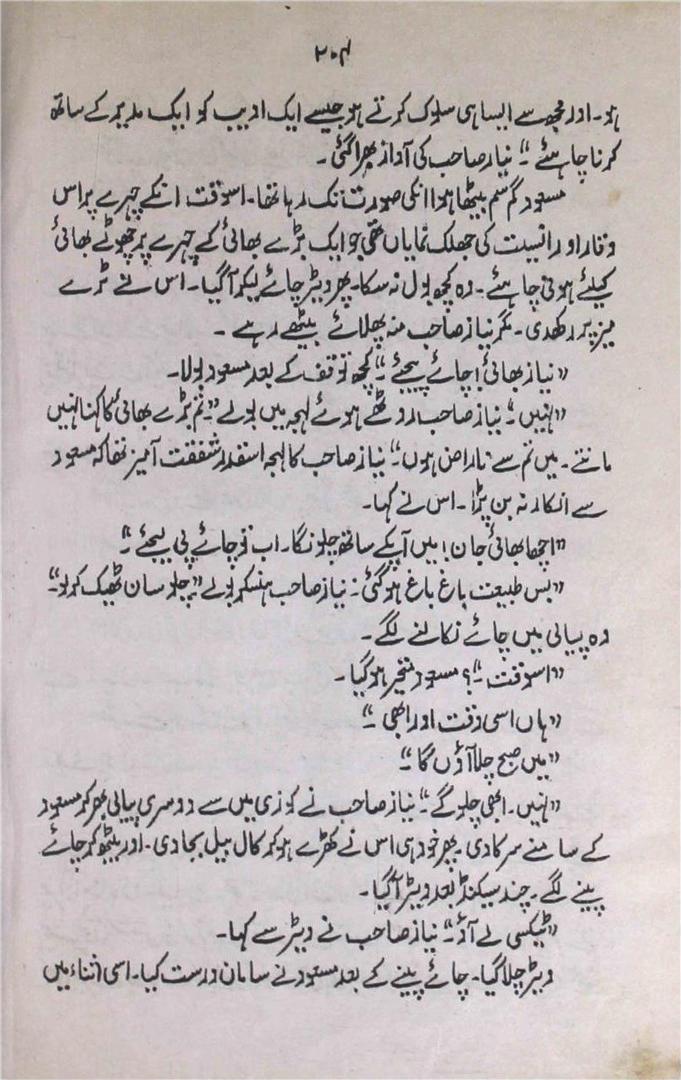 ۲۰۴
ہو۔ اور مجھ سے ایسا ہی سلوک کرتے ہو جیسے ایک ادیب کو ایک مدیر کے ساتھ
کرنا چاہئے "۔ نیاز صاحب کی آواز بھرا گئی۔
مسعود گم سم بیٹھا ہوا انکی صورت تک رہا تھا۔ اسوقت انکے چہرے پر اس
وقار اور انسیت کی جھلک نمایاں تھی جو ایک بڑے بھائی کے چہرے پر چھوٹے بھائی
کیلئے ہوتی چاہئے۔ وہ کچھ بول نہ سکا۔ پھر ویٹر چائے لیکر آگیا۔ اس نے ٹرے
میز پر رکھدی۔ مگر نیاز صاحب منہ پھلائے بیٹھے رہے۔
"نیاز بھائی! چائے پیجئے"۔ کچھ توقف کے بعد مسعود بولا۔
"نہیں"۔ نیاز صاحب روٹھے ہوئے لہجہ میں بولے "تم بڑے بھائی کا کہنا نہیں
مانتے۔ میں تم سے ناراض ہوں"۔ نیاز صاحب کا لہجہ اسقدر شفقت آمیز تھا کہ مسعود
سے انکار نہ بن پڑا۔ اس نے کہا۔
"اچھا بھائی جان! میں آپکے ساتھ چلونگا۔ اب تو چائے پی لیجئے"۔
"بس طبیعت باغ باغ ہو گئی"۔ نیاز صاحب ہنسکر بولے "چلو سامان ٹھیک کرلو"۔
وہ پیالی میں چائے نکالنے لگے۔
"اسوقت"۔؟ مسعود متحیر ہو گیا۔
"ہاں اسی وقت اور ابھی"۔
"میں صبح چلا آؤں گا"۔
"نہیں۔ ابھی چلو گے"۔ نیاز صاحب نے کوزی میں سے دوسری پیالی بھر کر مسعود
کے سامنے سرکا دی۔ پھر خود ہی اس نے کھڑے ہو کر کال بیل بجا دی۔ اور بیٹھ کر چائے
پینے لگے۔ چند سیکنڈ بعد ویٹر آگیا۔
"ٹیکسی لے آؤ"۔ نیاز صاحب نے ویٹر سے کہا۔
ویٹر چلا گیا۔ چائے پینے کے بعد مسعود نے سامان درست کیا۔ اسی اثناء میں